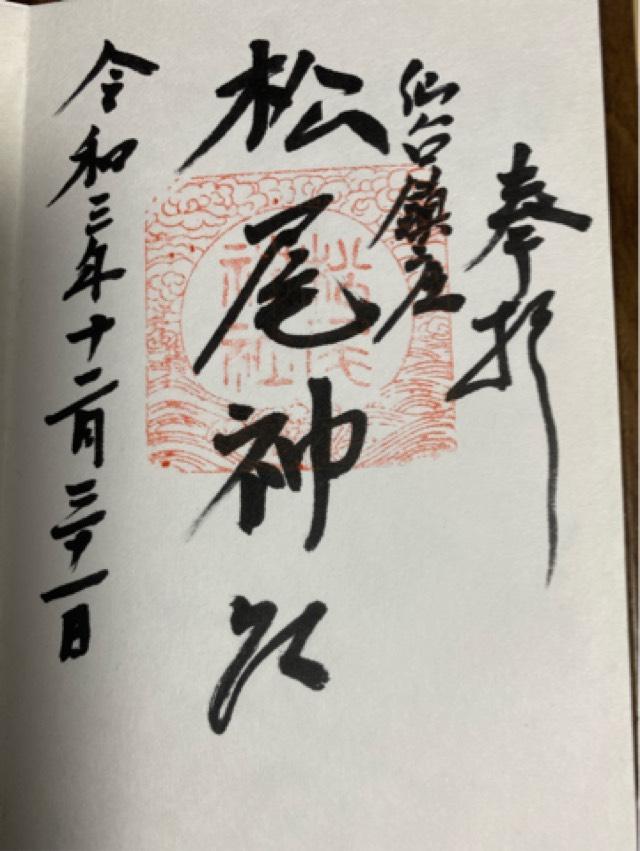 奉拝
仙台鎮座
松尾神社
令和三年十二月三十一日